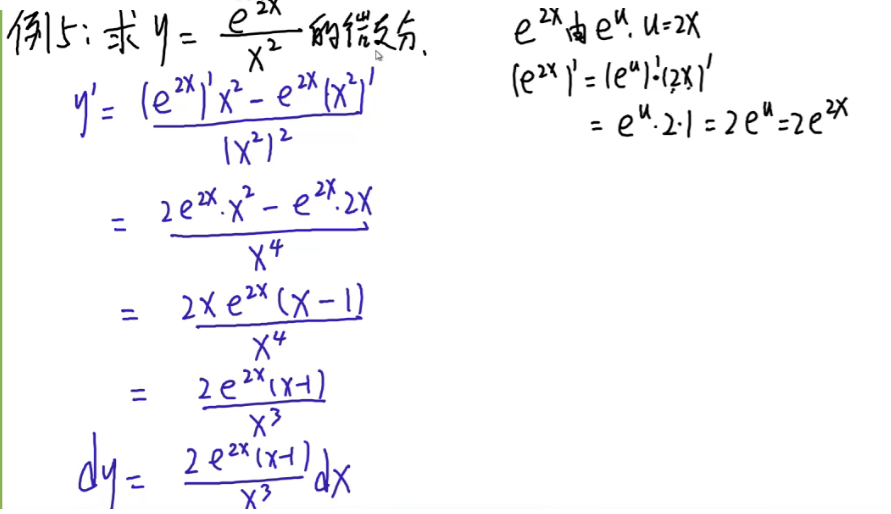 例5: 求 y = e^{2x}/x^2 的微分.
y' = ((e^{2x})'x^2 - e^{2x}(x^2)')/(x^2)^2
= (2e^{2x}·x^2 - e^{2x}·2x)/x^4
= 2xe^{2x}(x-1)/x^4
= 2e^{2x}(x-1)/x^3
dy = 2e^{2x}(x-1)/x^3 dx
e^{2x}由e^u. u=2x
(e^{2x})' = (e^u)'·(2x)'
= e^u·2·1 = 2e^u = 2e^{2x}